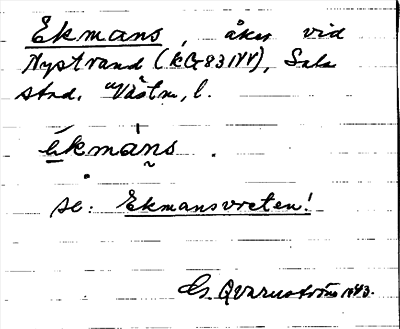 Ekmans, åker vid
Nystrand (kG 83 NV), Sala
stad. Västm. l.
ekmans.
se. Ekmansvreten!
G. Qvarnström 1943.